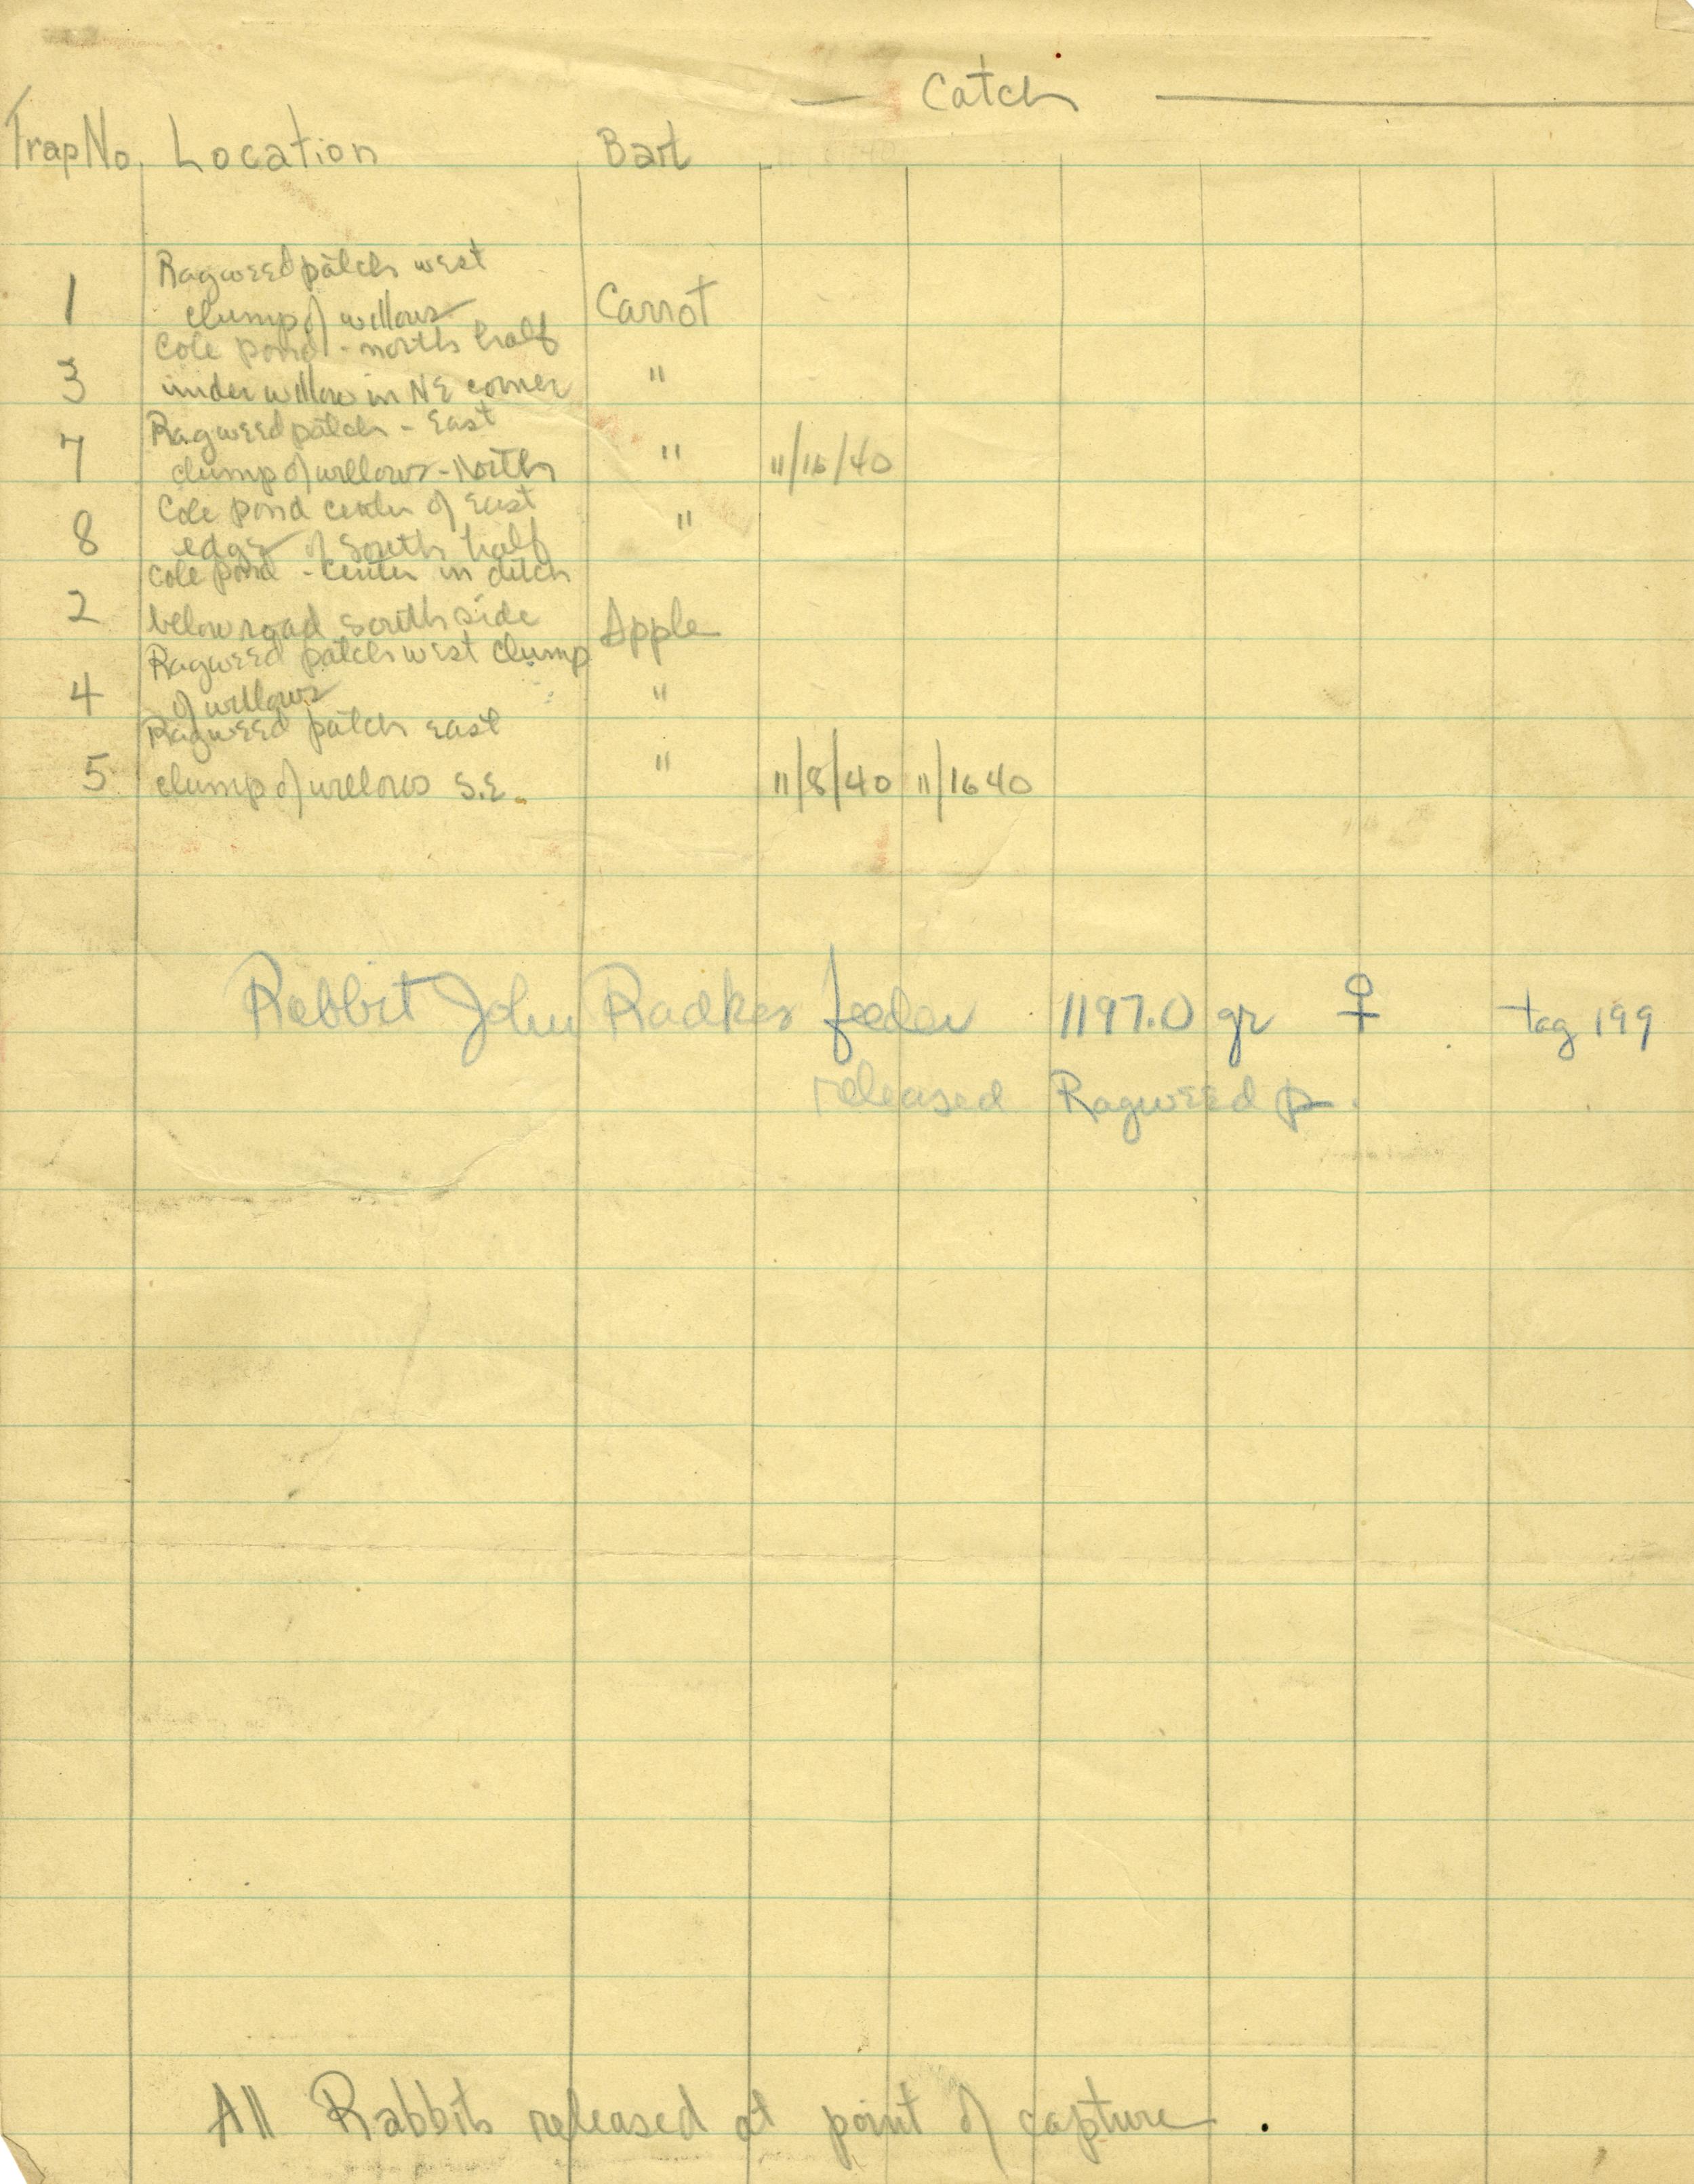 Catch
Trap No. Location Bait
Ragweed patch west
1 clump of willows Carrot
Cole pond - north half
3 under willow in NE corner "
Ragweed patch - East
7 clump of willows - North " 11/16/40
Cole pond center of East
8 edge of South half "
Cole pond - center in ditch
2 below road south side Apple
Ragweed patch west clump
4 of willows "
Ragweed patch east
5 clump of willows S.E. " 11/8/40 11/16 40
Rabbit John Radkes feeder 1197.0 gr ♀ tag 199
released Ragweed p.
All Rabbits released at point of capture.